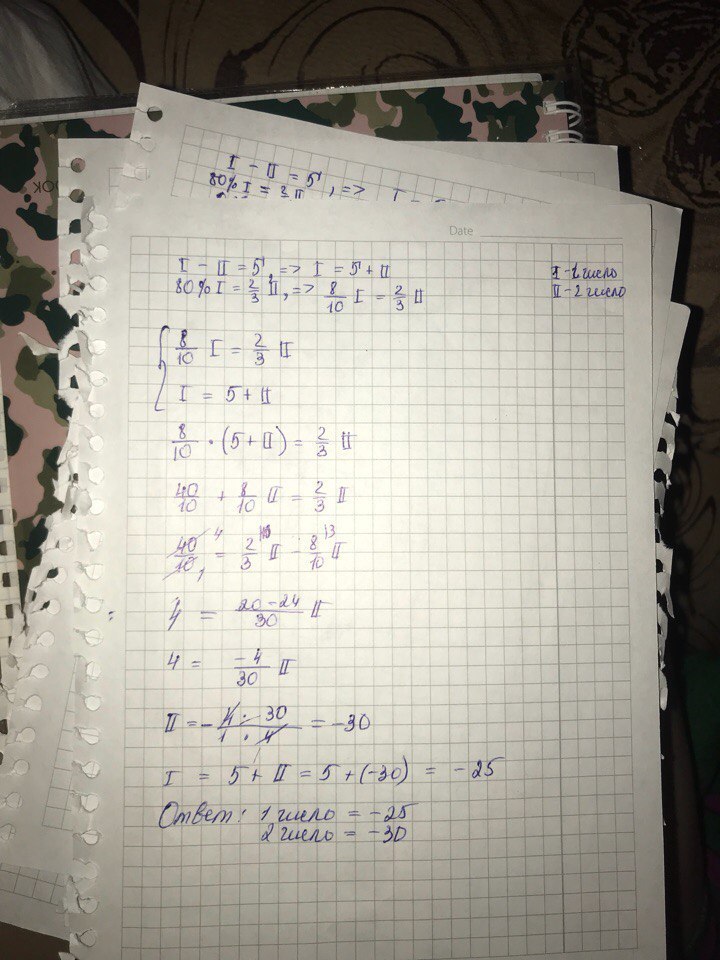 I - II = 5
80% I = 2/3 II, =>
Date
I - II = 5, => I = 5 + II
80% I = 2/3 II, => 8/10 I = 2/3 II
I - 1 число
II - 2 число
8/10 I = 2/3 II
I = 5 + II
8/10 · (5 + II) = 2/3 II
40/10 + 8/10 II = 2/3 II
40/10 = 2/3 II - 8/10 II
4 = 20 - 24/30 II
4 = -4/30 II
II = - 4 · 30/1 · 4 = -30
I = 5 + II = 5 + (-30) = -25
Ответ: 1 число = -25
2 число = -30